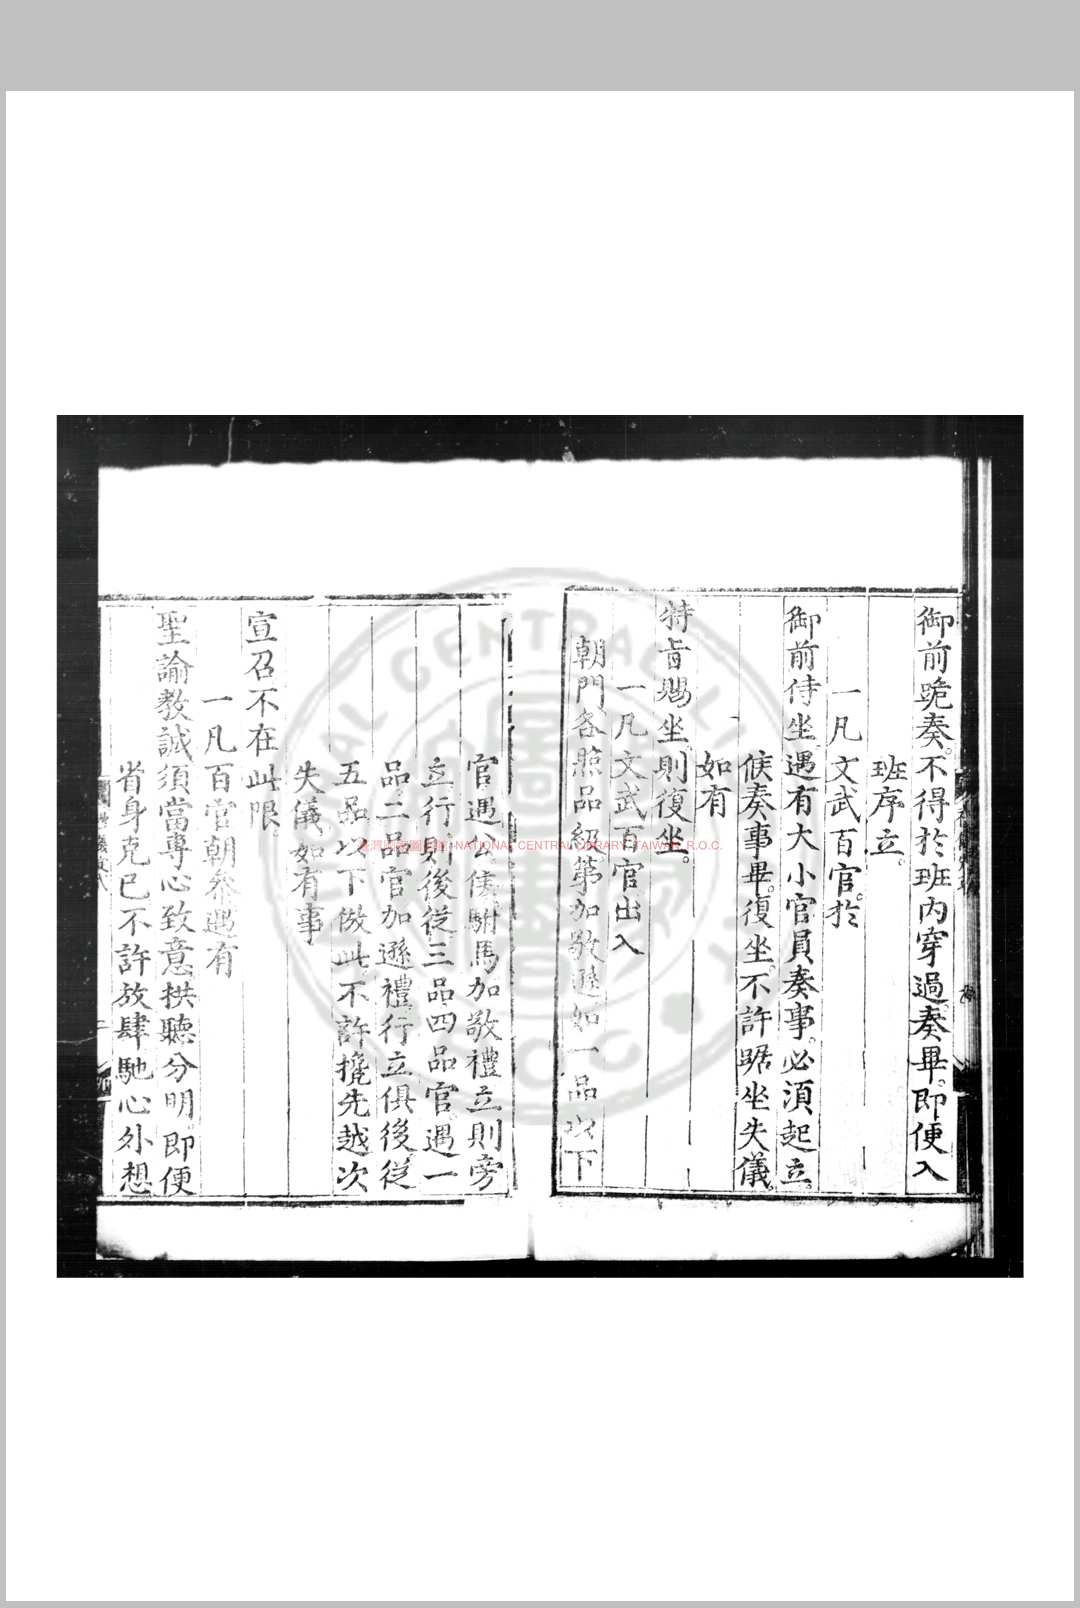 御前跪奏。不得於班內穿過。奏畢。即便入
班序立。
一凡文武百官。於
御前侍坐。遇有大小官員奏事。必須起立。
候奏事畢。復坐。不許踞坐失儀。
如有
特旨賜坐。則復坐。
一凡文武百官出入
朝門。各照品級。第加敬遜。如一品以下
官遇公侯駙馬。加敬禮。立則旁
立。行則後從。三品四品官。遇一
品二品官。加遜禮。行立俱後從。
五品以下倣此。不許攙先越次
失儀。如有事
宣召不在此限。
一凡百官朝參。遇有
聖諭教誡。須當專心致意。拱聽分明。即便
省身克己。不許放肆馳心外想
NATIONAL CENTRAL LIBRARY, TAIWAN, R.O.C.